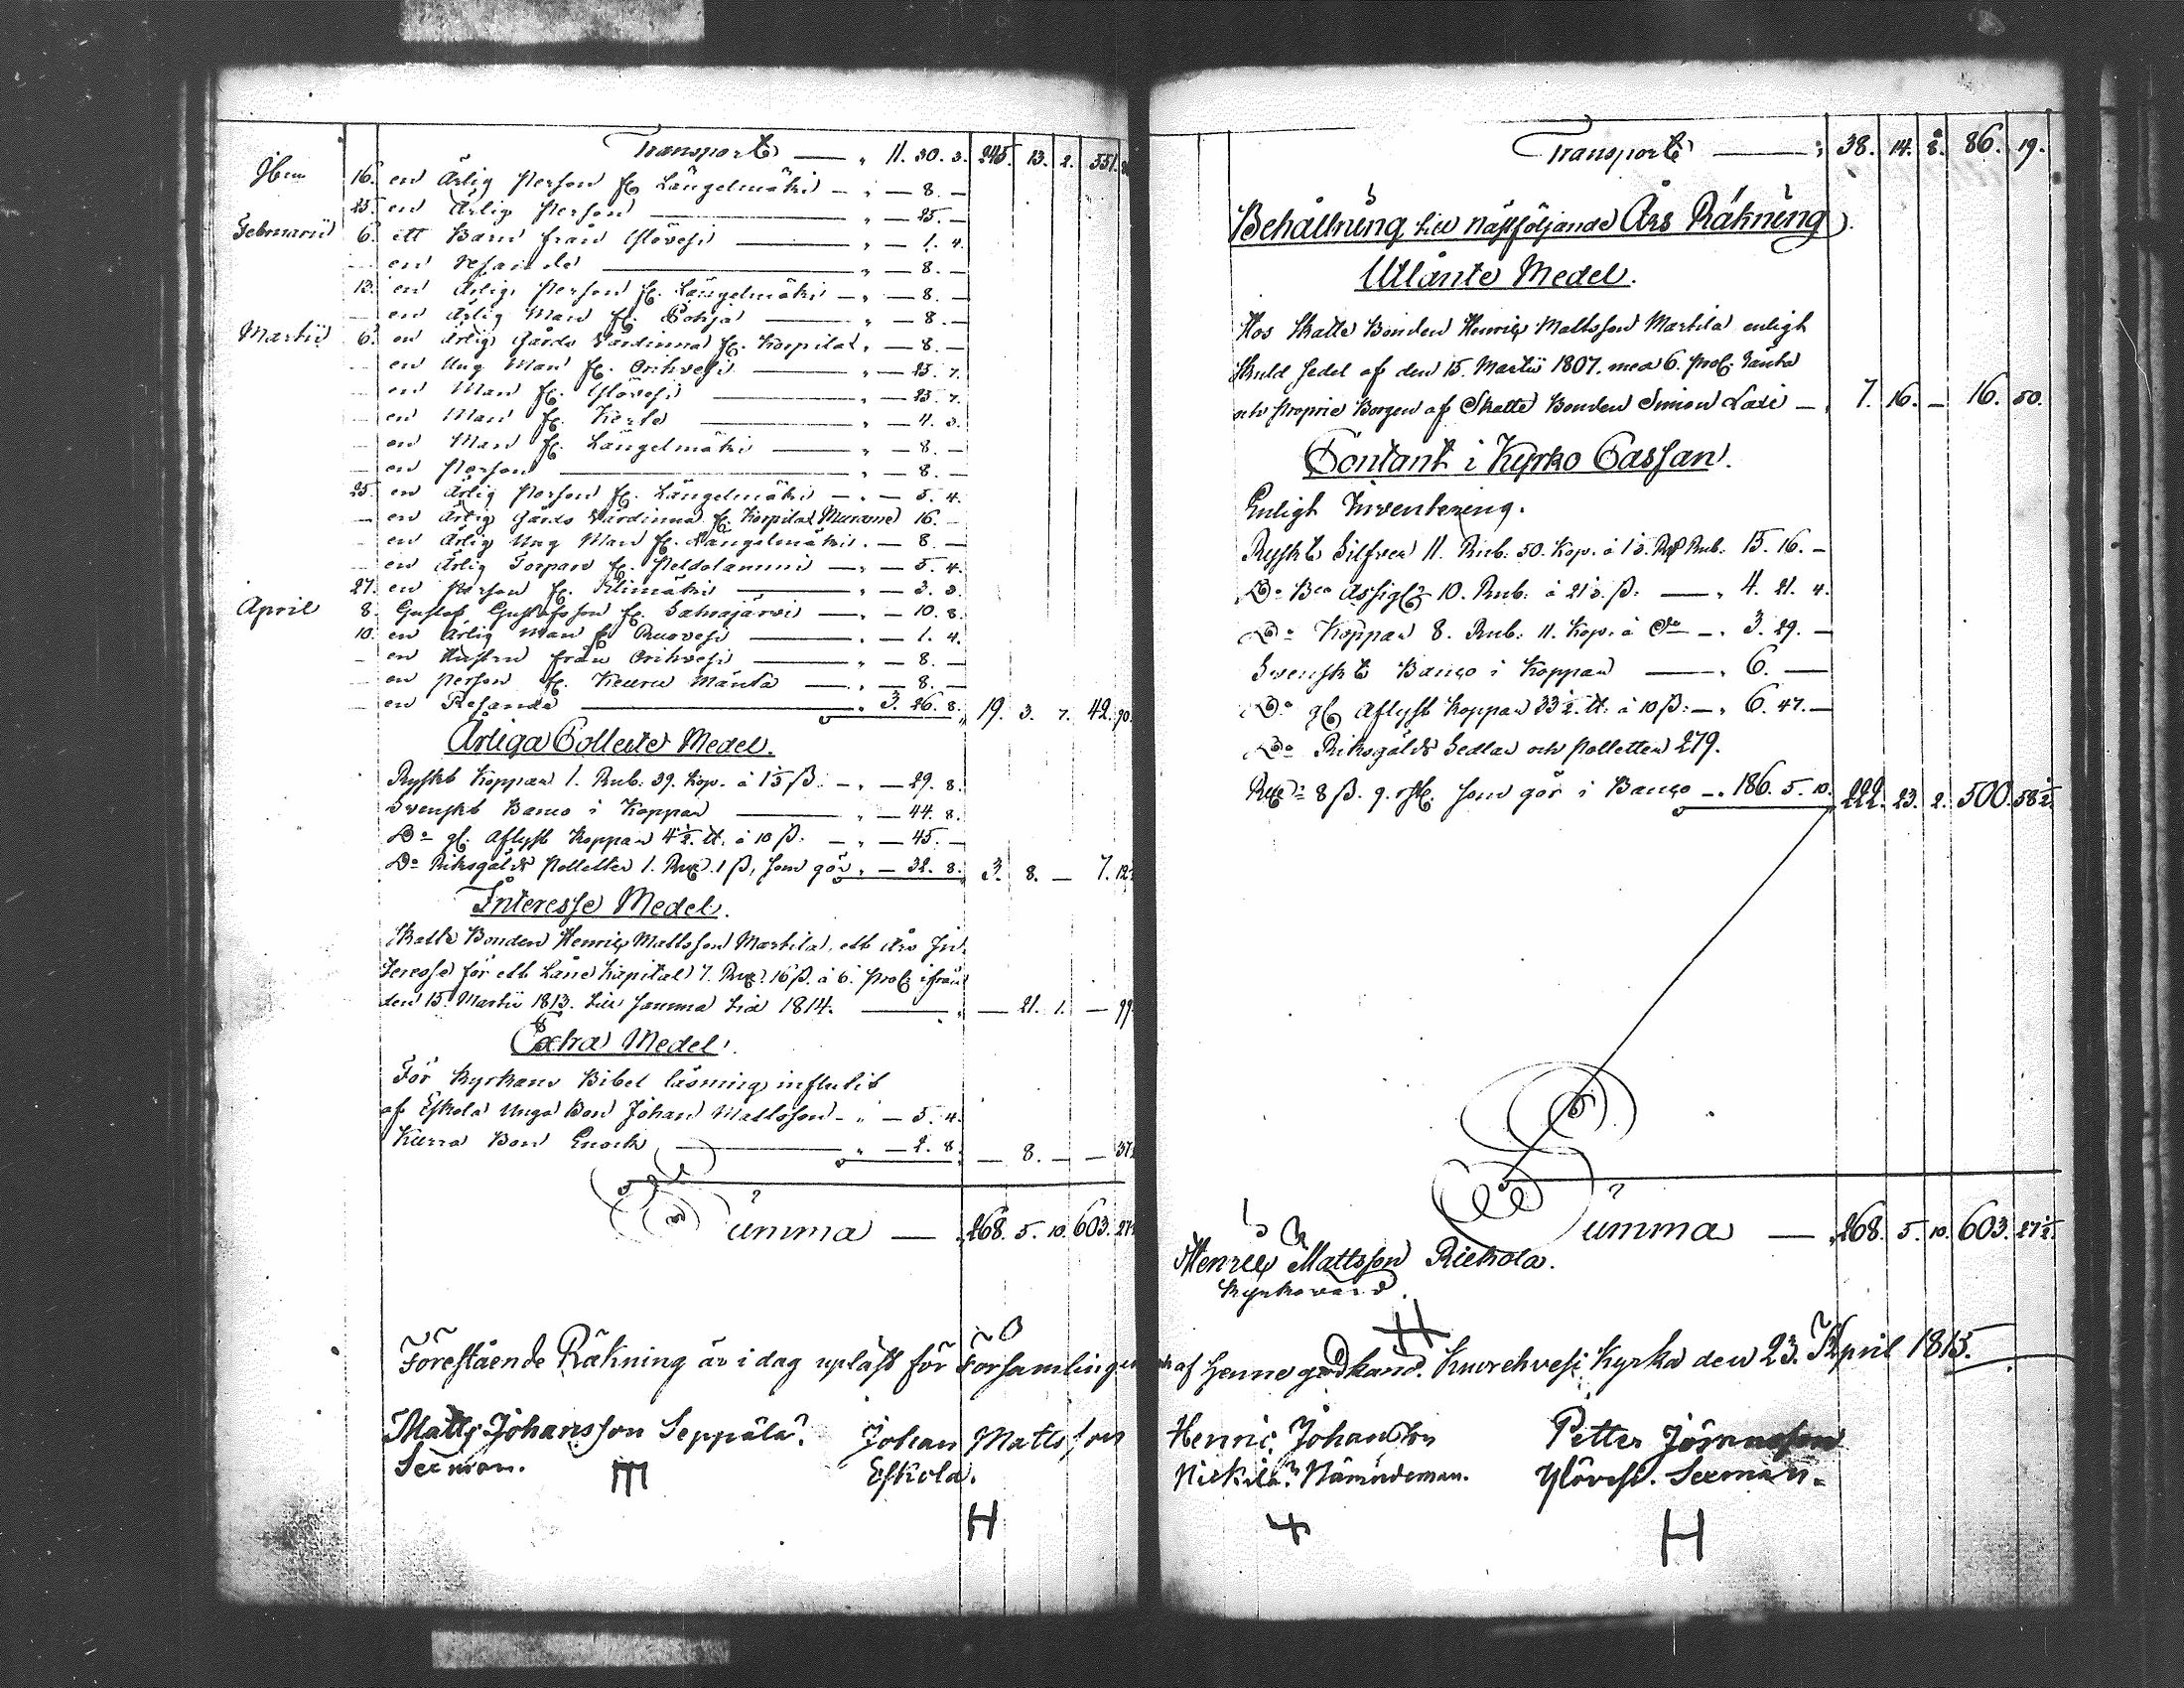 Transport — " 11. 30. 3. 245. 13. 2. 551.
16. en Ärlig Person fr. Längelmäki — " — 8. —
25. en Ärlig Person — " — 25. —
Februarii 6. ett Barn från Ylövesi — " — 1. 4.
— en Resande — " — 8. —
13. en Ärlig Person fr. Längelmäki — " — 8. —
— en Ärlig Man fr. Pohja — " — 8. —
Martii 6. en Ärlig Gårds Värdinna fr. Korpilax " — 8. —
— en Ung Man fr. Orihvesi — " — 23. 7.
— en Man fr. Ylövesi — " — 23. 7.
— en Man fr. — " — 4. 3.
— en Man fr. Längelmäki — " — 8. —
— en Person — " — 8. —
25. en Ärlig Person fr. Längelmäki — " — 5. 4.
— en Ärlig Gårds Värdinna fr. Korpilax Murame 16. —
— en Ärlig Ung Man fr. Längelmäki. — 8. —
— en Ärlig Torpare fr. — " — 5. 4.
27. en Person fr. — " — 3. 3.
April 8. Gustaf Gustafsson fr. Sahrajärvi — " — 10. 8.
10. en Ärlig Man fr. Ruovesi — " — 1. 4.
— en Hustru från Orihvesi — " — 8. —
— en Person fr. Keuru Mänttä — " — 8. —
— en Resande — " 3. 26. 8. 19. 3. 7. 42. 90.
Årliga Collecte Medel.
Ryskt Koppar 1. Rub: 39. Kop. à 1 3 ß: — " — 29. 8.
Svenskt Banco i Koppar — " — 44. 8.
Do gl. Aflyst Koppar 4½. ℔. à 10 ß. — " — 45. —
Do Riksgälds Polletter 1. Rdr. 1 ß, som gör " — 32. 8. 3. 8. — 7.
Interesse Medel.
Skatte Bonden Henric Mattsson Martila, ett års In-
teresse för ett Låne Kapital 7. Rdr. 16 ß. à 6. proC. ifrån
den 15. Martii 1813. till samma tid 1814. — " — 21. 1. — 99.
Extra Medel.
För Kyrkans Bibel läsning influtit
af Eskola Unga Bon. Johan Mattsson — " — 5. 4.
Kurra Bon. Enoch — " — 2. 8. — 8. — — 37
Summa — 268. 5. 10. 603. 27½
Förestående Räkning är i dag upläst för Församlingen
Matts Johansson Seppälä. Johan Mattsson
Sexman. Eskola.
H
Transport — " 38. 14. 8. 86. 19.
Behållning till nästföljande Års Räkning.
Utlånte Medel.
Hos Skatte Bonden Henric Mattsson Martila enligt
Skuld sedel af den 15. Martii 1807. med 6. proC. ränta
och proprie Borgen af Skatte Bonden Simon Lari — " 7. 16. — 16. 50.
Contant i Kyrko Cassan.
Enligt Inventering.
Ryskt Silfver 11. Rub: 50. Kop. à 1⅓. Rdr Rub: 15. 16. —
Do Bco Assigt: 10. Rub: à 21⅓. ß: — " 4. 21. 4.
Do Koppar 8. Rub: 11. Kop. à Do — " 3. 29. —
Svenskt Banco i Koppar — " 6. —
Do gl. Aflyst Koppar 33½. ℔: à 10 ß: — " 6. 47. —
Do Riksgälds Sedlar och Polletter 279.
Rdr: 8 ß. 9. rst. som gör i Banco — " 186. 5. 10. 222. 23. 2. 500. 58½.
Summa — " 268. 5. 10. 603. 27½.
Henric Mattsson Riekola.
Kyrkovärd.
H
och af henne godkänd. Kuorehvesi Kyrka den 23. April 1815.
Henric Johansson Petter Jöransson
Nickilä Nämndeman. Ylövesi. Sexman.
H